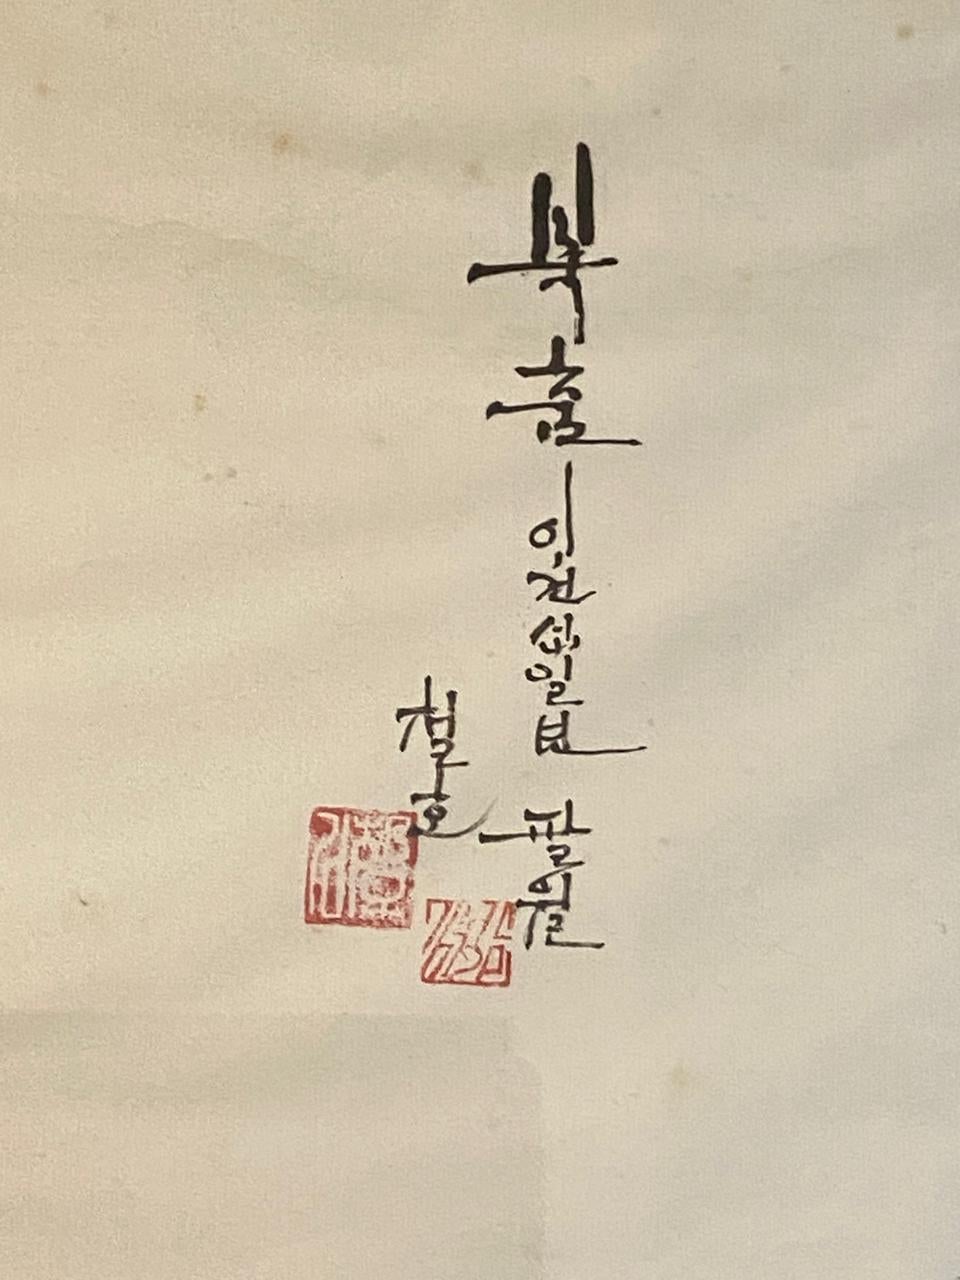 북춤
이천십일년 팔월
철호